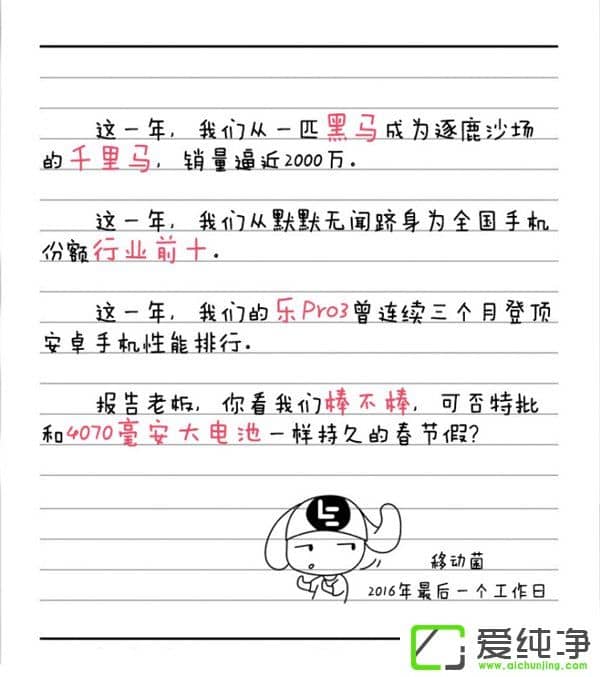 这一年，我们从一匹黑马成为逐鹿沙场
的千里马，销量逼近2000万．
这一年，我们从默默无闻跻身为全国手机
份额行业前十．
这一年，我们的乐Pro3曾连续三个月登顶
安卓手机性能排行．
报告老板，你看我们棒不棒，可否特批
和4070毫安大电池一样持久的春节假？
移动菌
2016年最后一个工作日
爱纯净
www.aichunjing.com